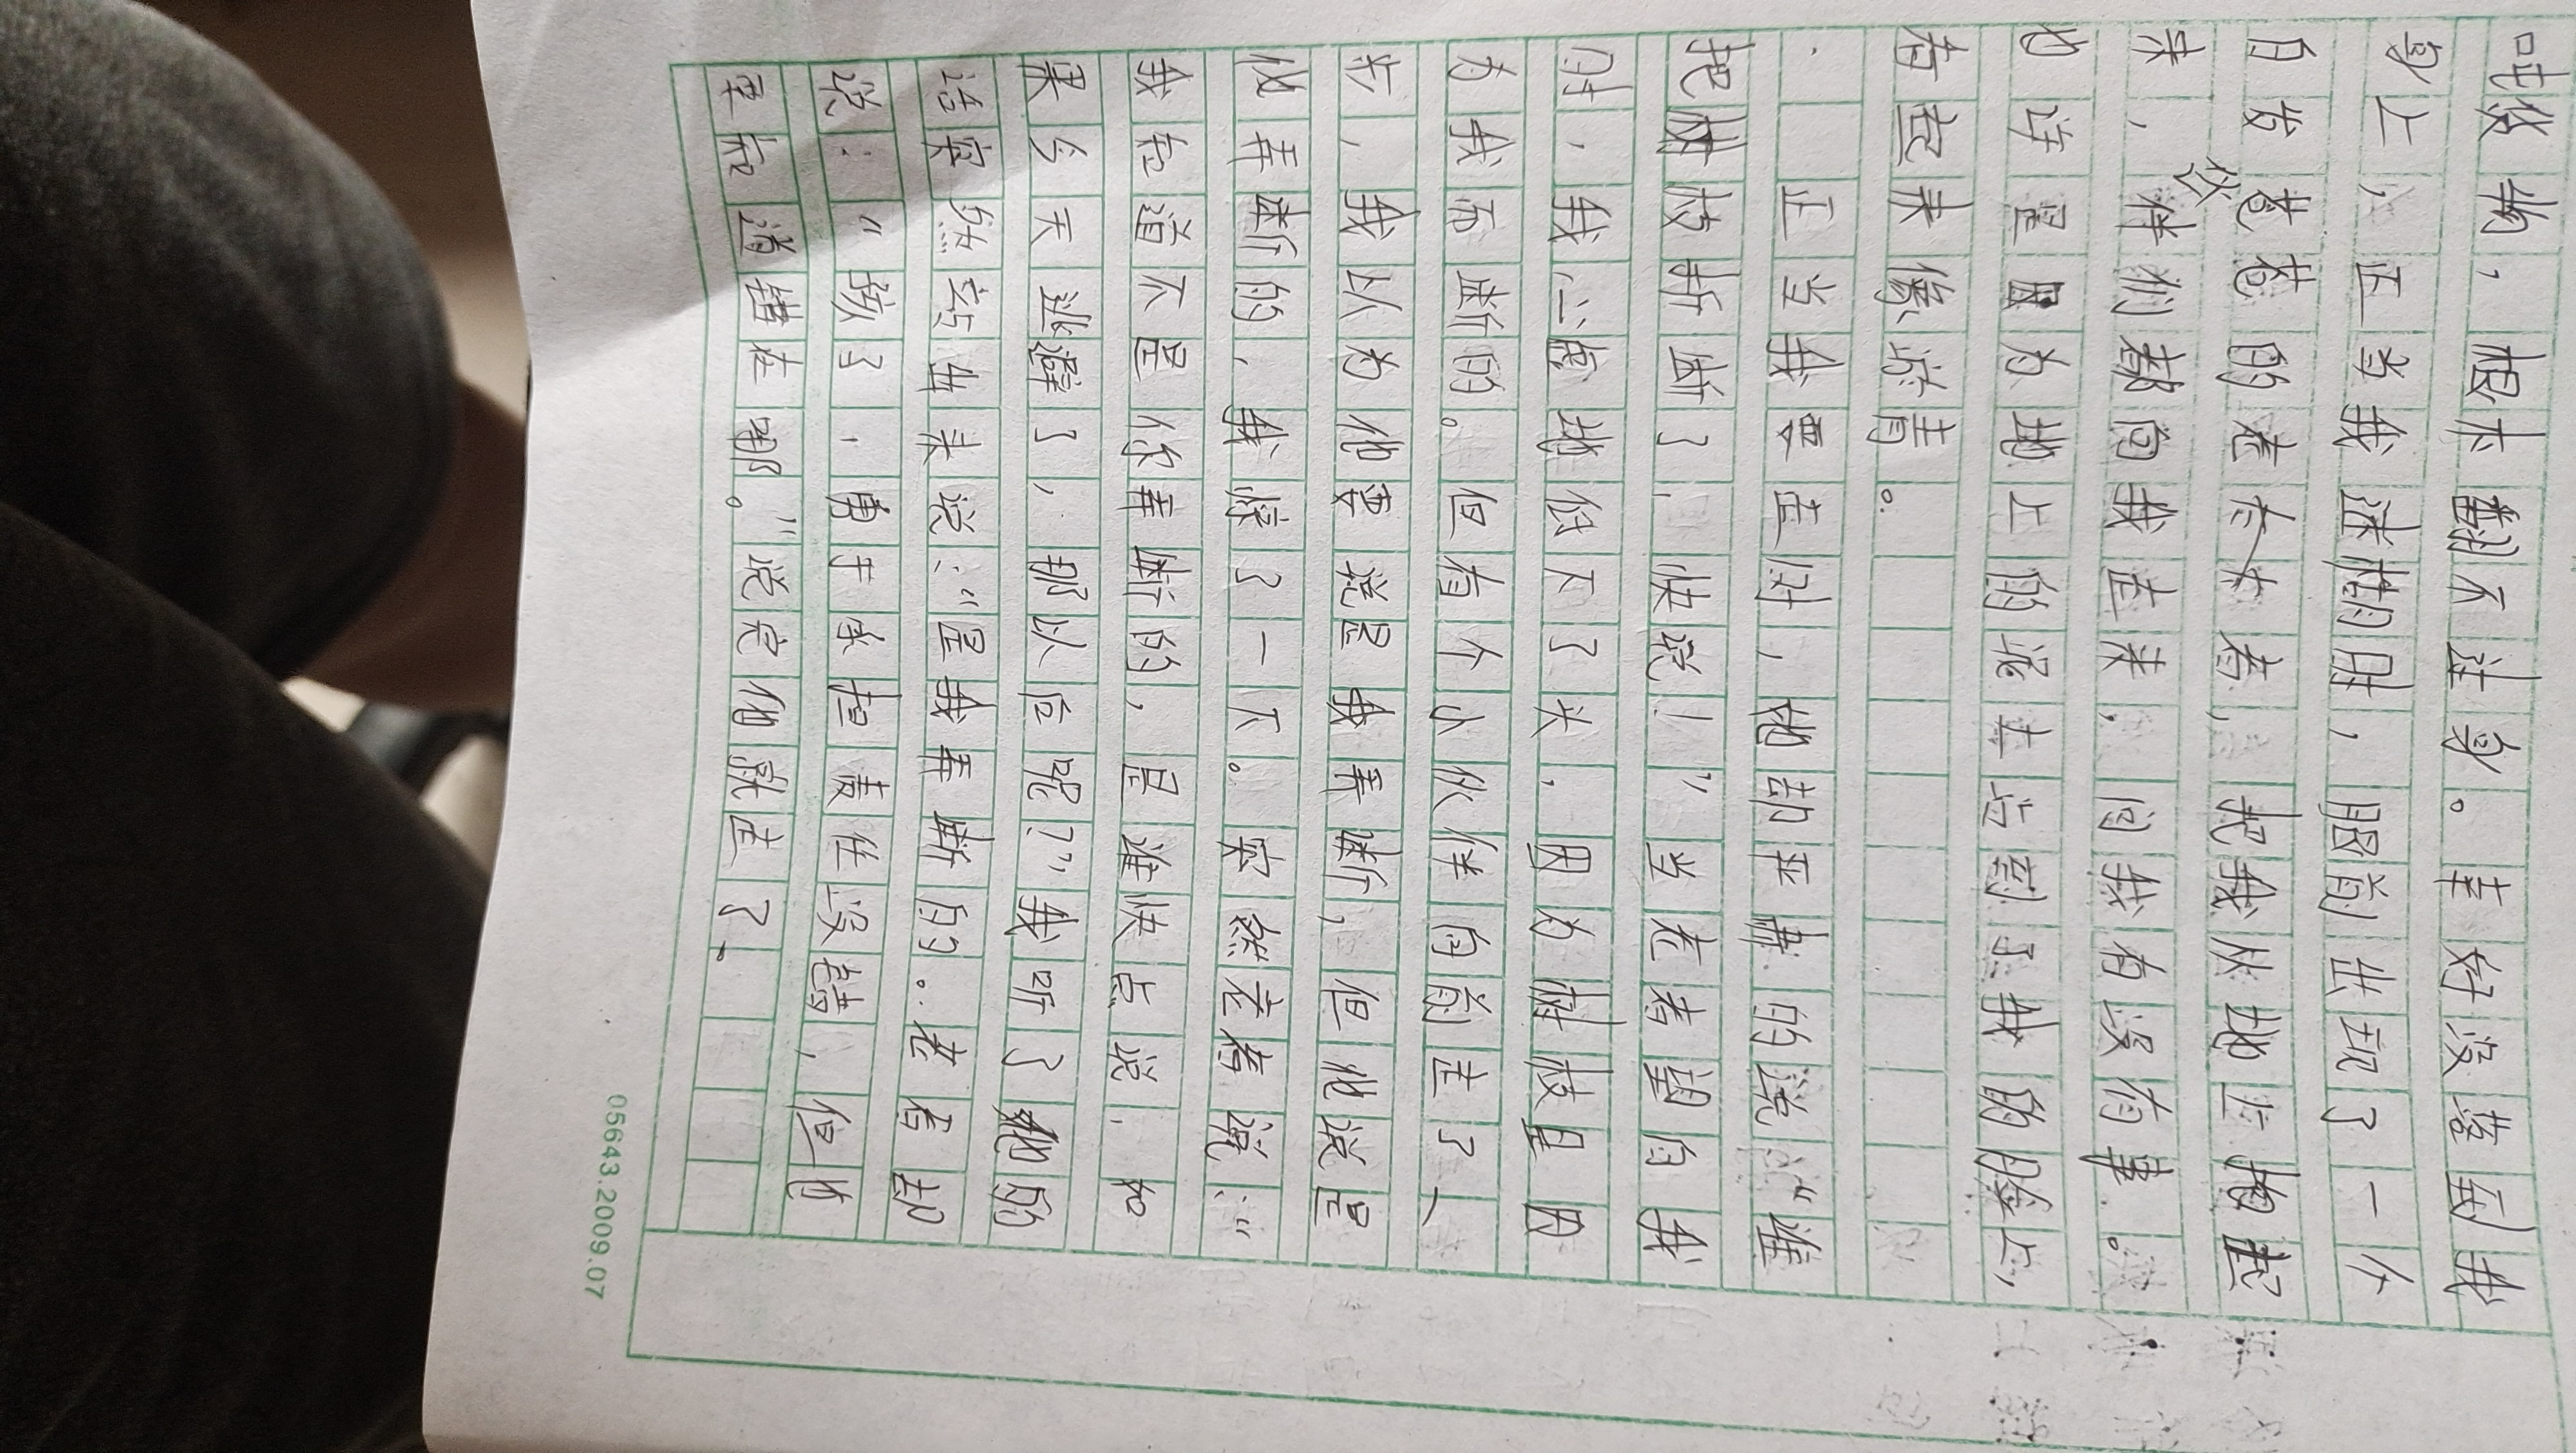 吨货物，根本翻不过身。幸好没落到我
身上，正当我迷糊时，眼前出现了一个
白发苍苍的老太太者，把我从地上掩起
来，伙伴们都向我走来，问我有没有事。
也许是因为地上的泥土占到了我的脸上，
看起来像淤青。
正当我要走时，他却平静的说“谁
把树枝折断了，快说！”当老者望向我
时，我心虚地低下了头，因为树枝是因
为我而断的。但有个小伙伴向前走了一
步，我以为他要说是我弄断，但他说是
他弄断的，我愣了一下。突然老者说：“
我知道不是你弄断的，是谁快点说，如
果今天逃避了，那以后呢？”我听了他的
话突然站出来说：“是我弄断的。老者却
说：“孩子，勇于承担责任没错，但也
要知道错在哪。”说完他就走了。
05643.2009.07